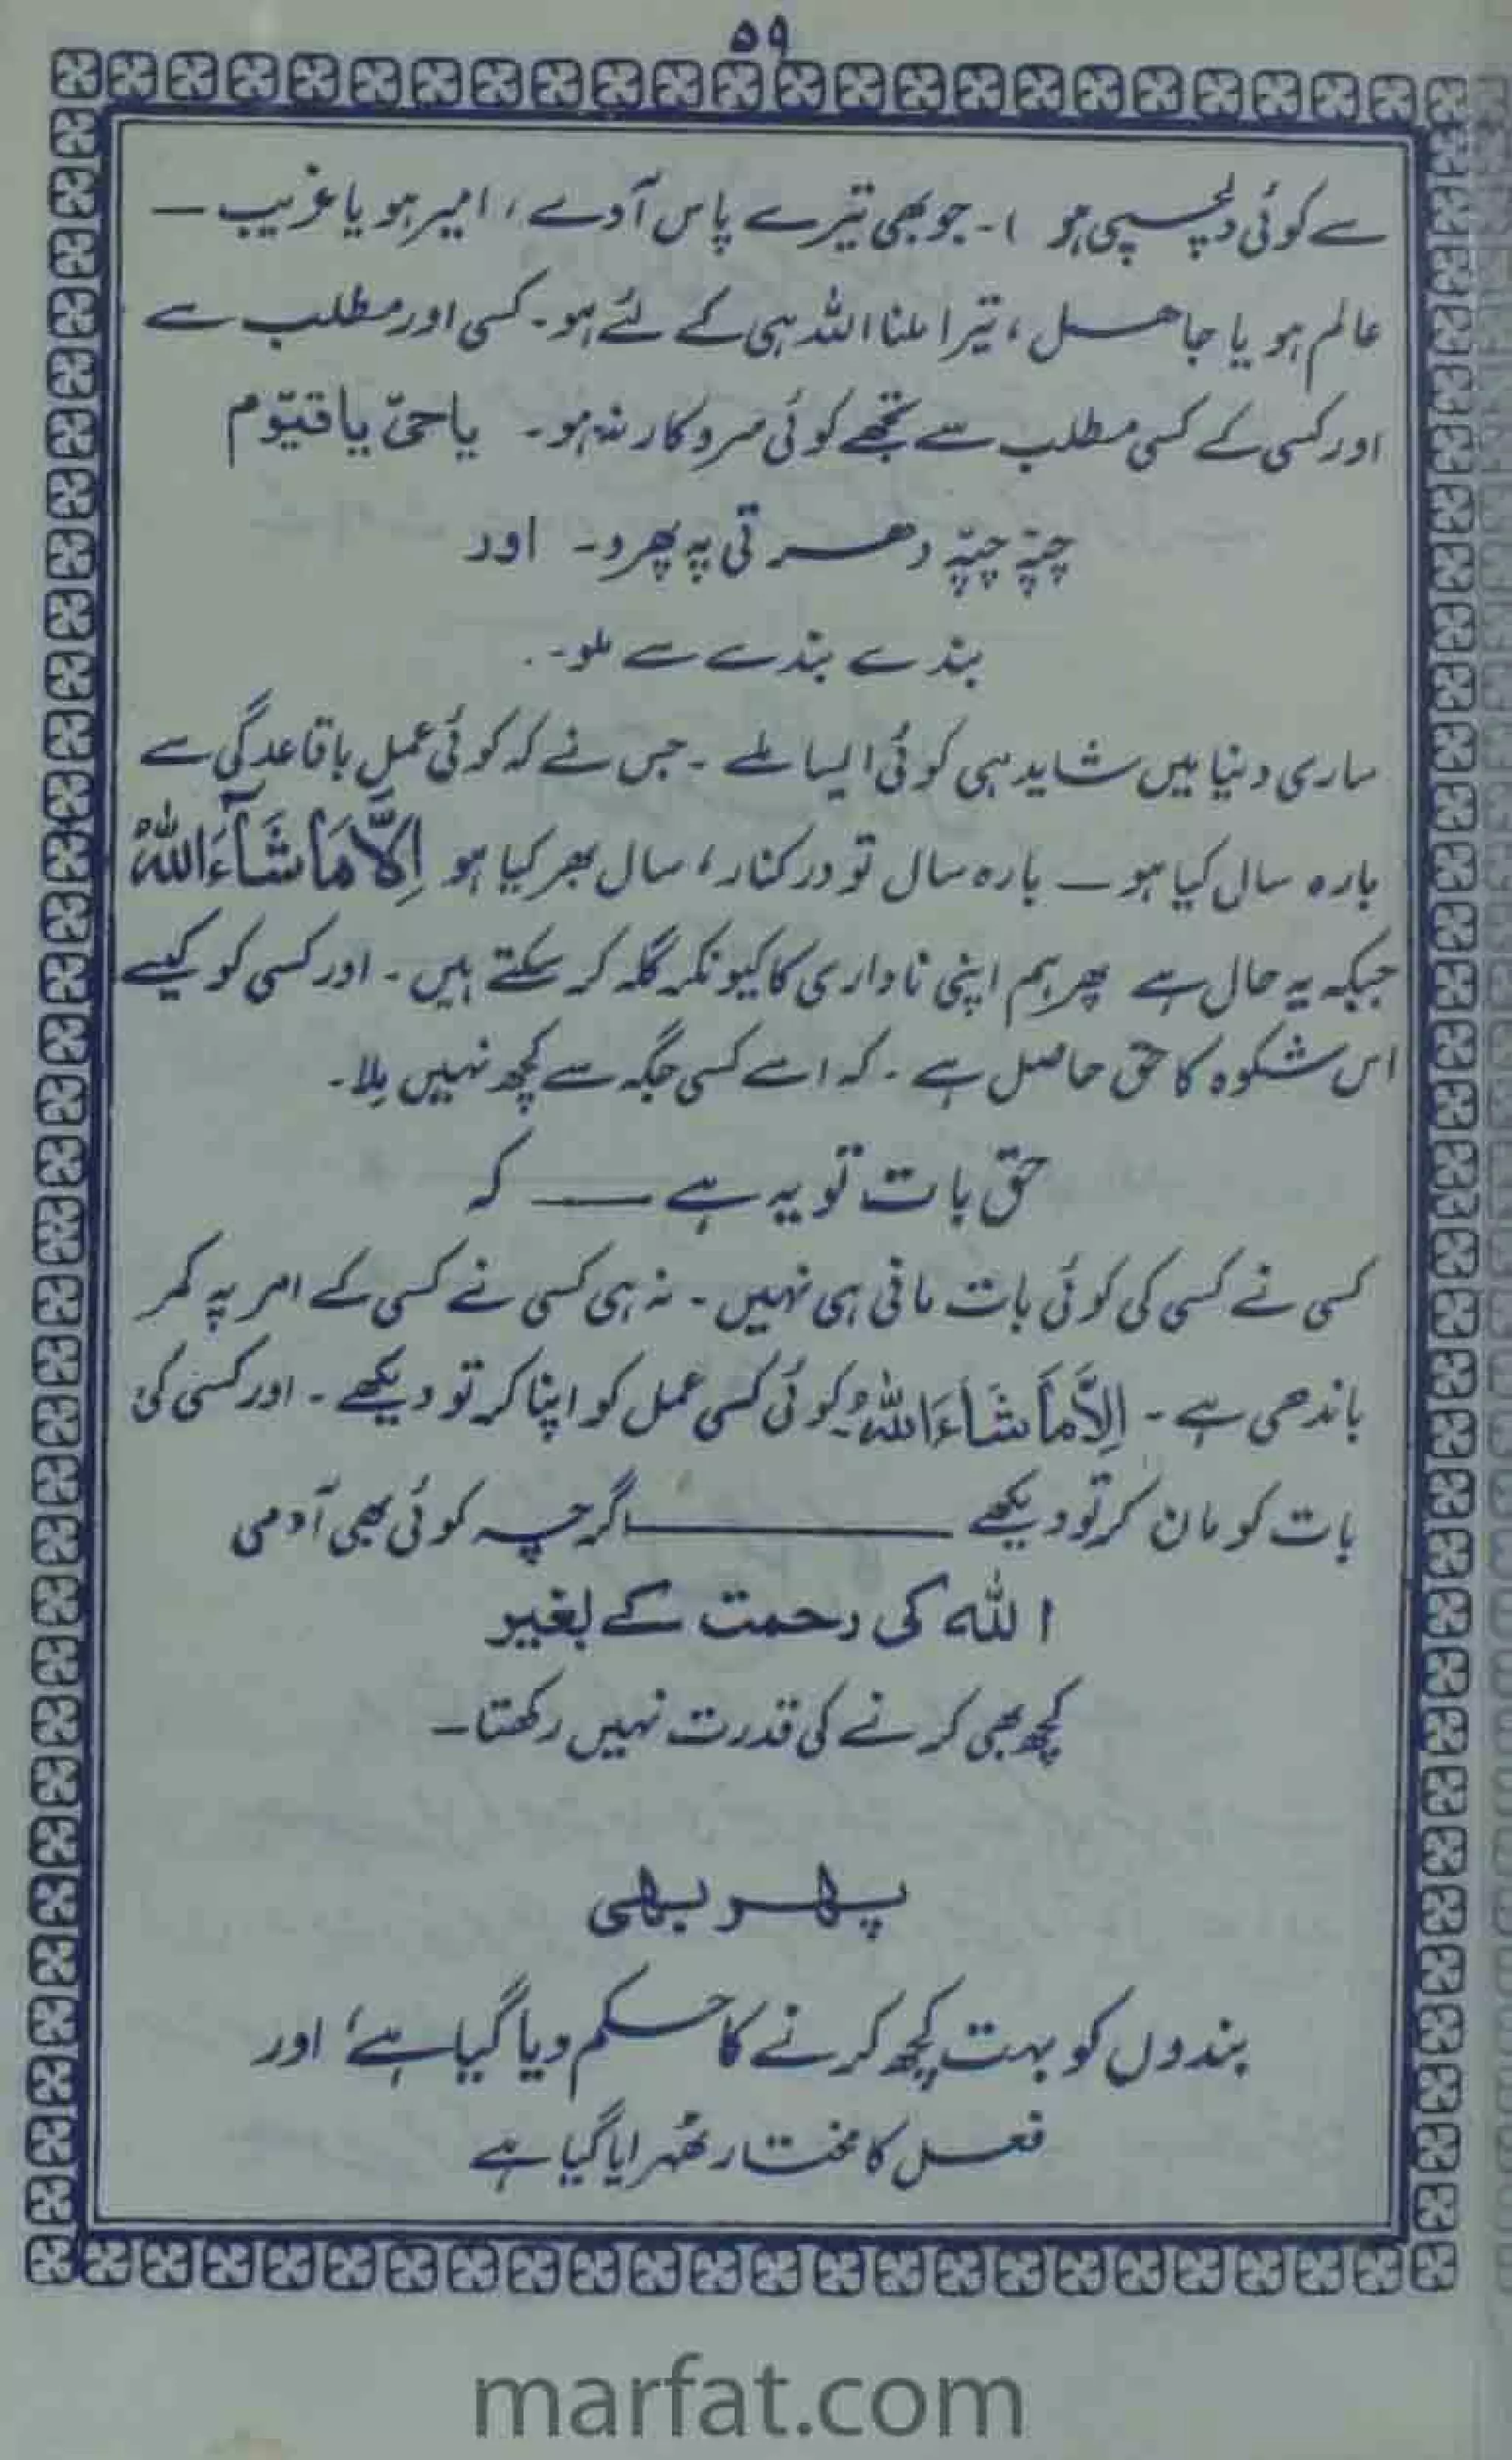 ۵۹
سے کوئی دلچسپی ہو ) ۔ جو بھی تیرے پاس آوے ، امیر ہو یا غریب —
عالم ہو یا جاہل ، تیرا ملنا اللہ ہی کے لئے ہو ۔ کسی اور مطلب سے
اور کسی کے کسی مطلب سے تجھے کوئی سروکار نہ ہو ۔ یا حیّ یا قیّوم
چپّہ چپّہ دھرتی پہ پھرو ۔ اور
بندے بندے سے ملو ۔
ساری دنیا میں شاید ہی کوئی ایسا ملے ۔ جس نے کہ کوئی عمل باقاعدگی سے
بارہ سال کیا ہو — بارہ سال تو درکنار ، سال بھر کیا ہو اِلَّا مَا شَآءَ اللہُ
جبکہ یہ حال ہے پھر ہم اپنی ناداری کا کیونکر گلہ کر سکتے ہیں ۔ اور کسی کو کیسے
اس شکوہ کا حق حاصل ہے ۔ کہ اسے کسی جگہ سے کچھ نہیں مِلا ۔
حق بات تو یہ ہے —— کہ
کسی نے کسی کی کوئی بات مانی ہی نہیں ۔ نہ ہی کسی نے کسی کے امر پہ کمر
باندھی ہے ۔ اِلَّا مَا شَاءَ اللہُ ۔ کوئی کسی عمل کو اپنا کر تو دیکھے ۔ اور کسی کی
بات کو مان کر تو دیکھے ———— اگرچہ کوئی بھی آدمی
اللہ کی رحمت کے بغیر
کچھ بھی کرنے کی قدرت نہیں رکھتا ۔
پھر بھی
بندوں کو بہت کچھ کرنے کا حکم دیا گیا ہے ، اور
فعل کا مختار ٹھہرایا گیا ہے
marfat.com